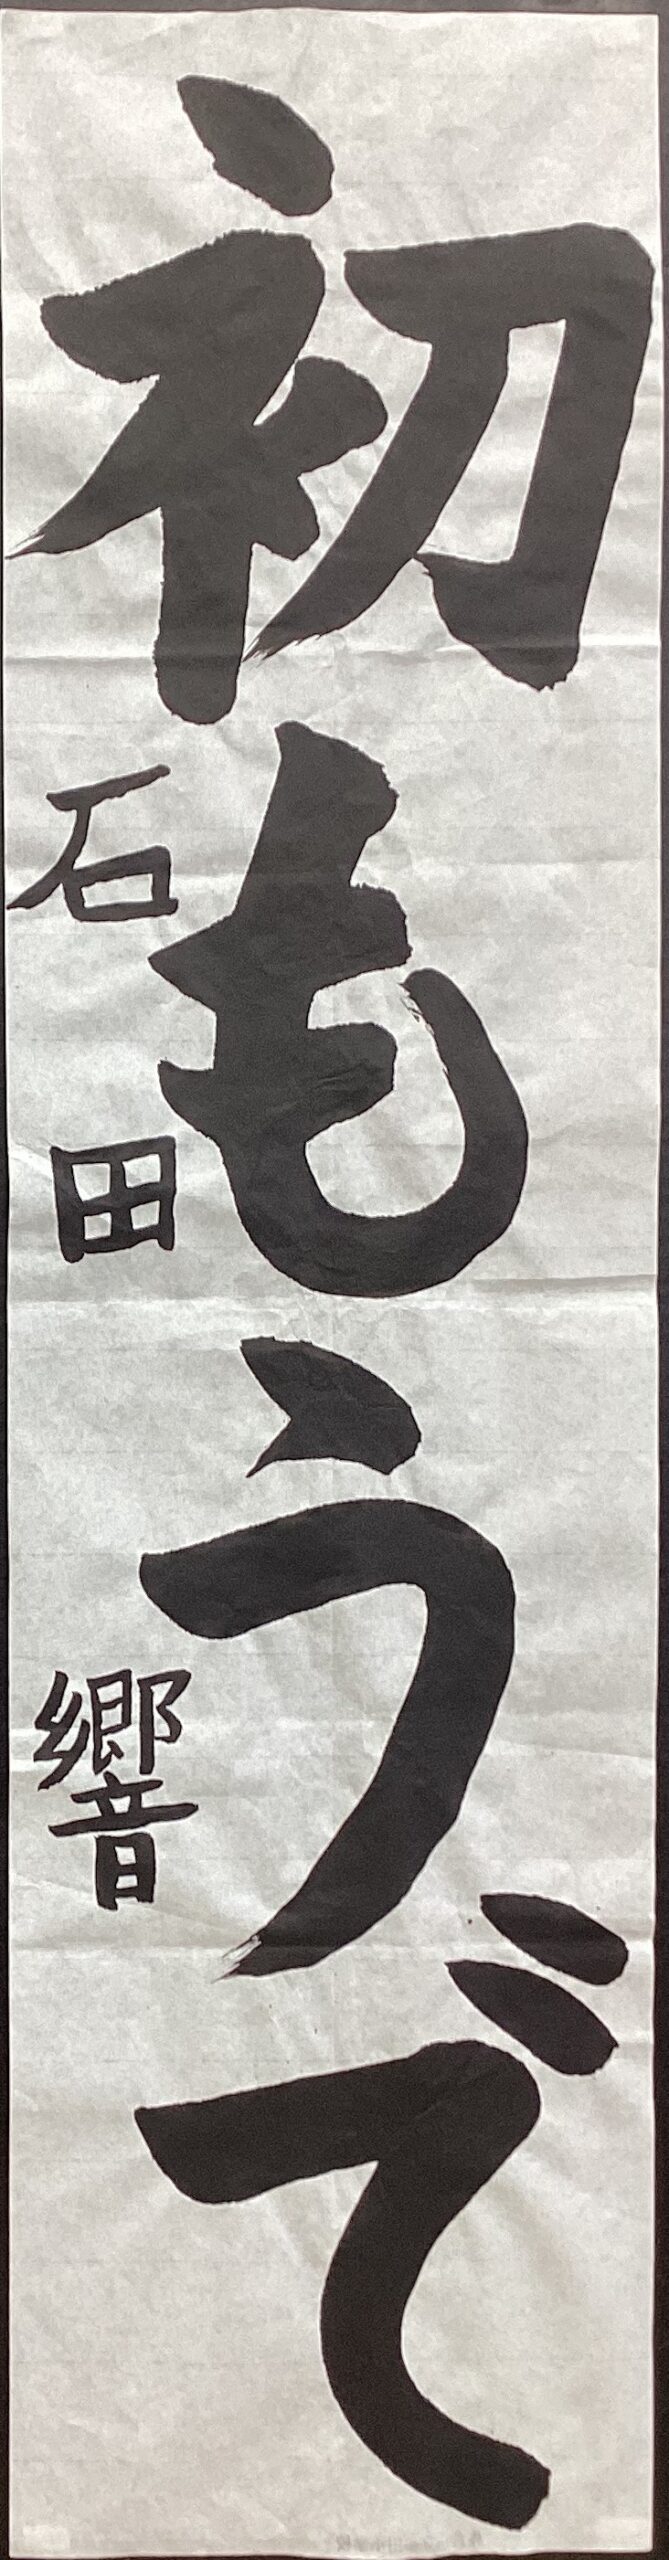 初もうで
石田響